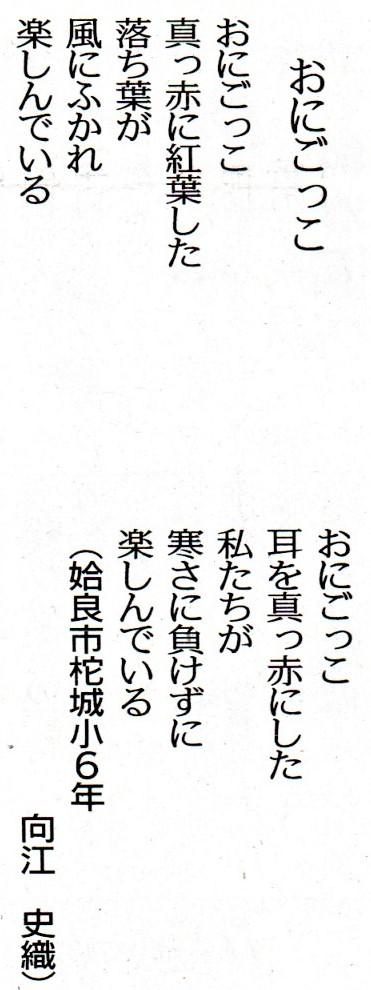 おにごっこ
おにごっこ
真っ赤に紅葉した
落ち葉が
風にふかれ
楽しんでいる
おにごっこ
耳を真っ赤にした
私たちが
寒さに負けずに
楽しんでいる
（姶良市柁城小６年
向江　史織）